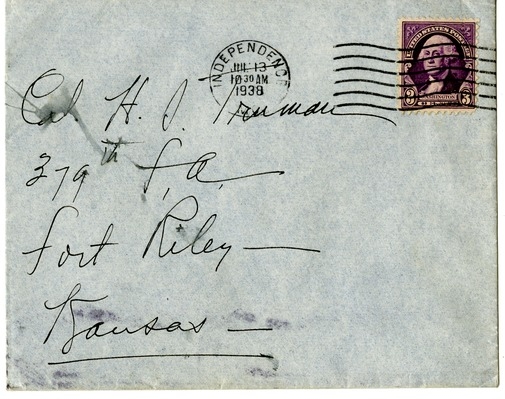 UNITED STATES POSTAGE
INDEPENDENCE
JUL 13
10 30 AM
1938
3
WASHINGTON
3
Col. H. S. Truman
379th F.A.
Fort Riley—
Kansas—